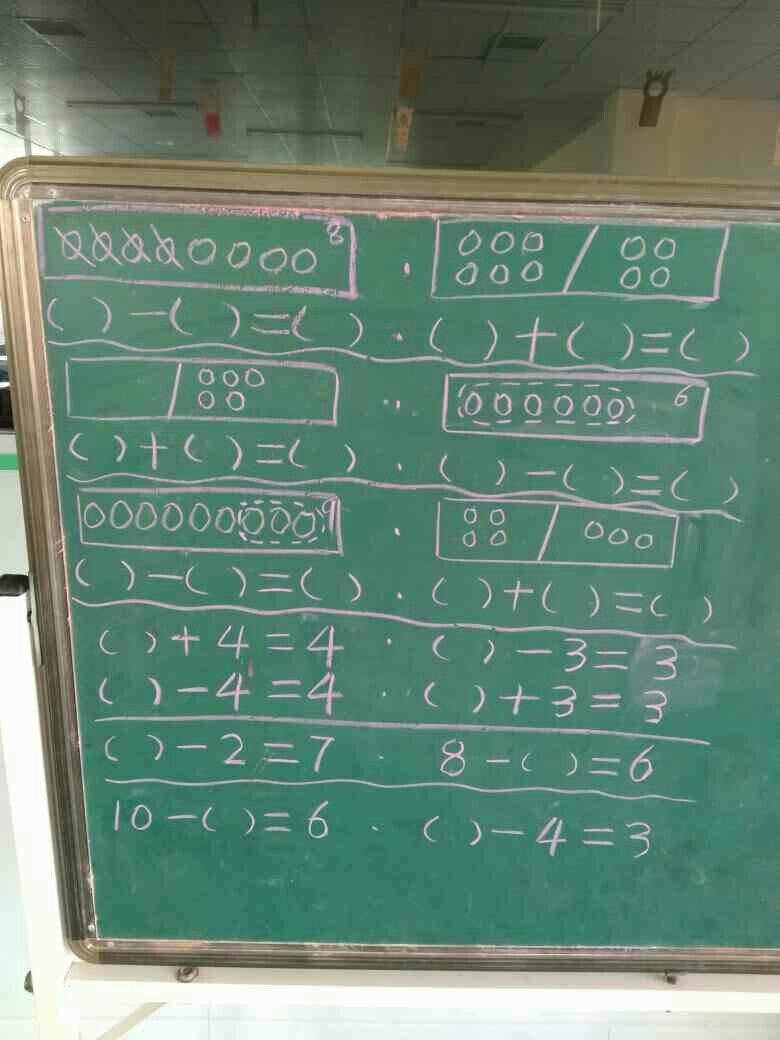 8
( ) - ( ) = ( ) . ( ) + ( ) = ( )
6
( ) + ( ) = ( ) . ( ) - ( ) = ( )
9
( ) - ( ) = ( ) . ( ) + ( ) = ( )
( ) + 4 = 4 . ( ) - 3 = 3
( ) - 4 = 4 . ( ) + 3 = 3
( ) - 2 = 7 . 8 - ( ) = 6
10 - ( ) = 6 . ( ) - 4 = 3